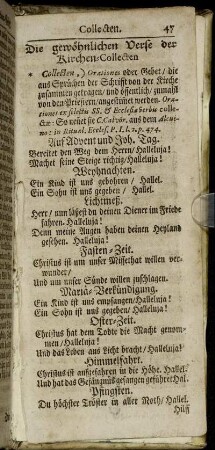 Collecten. 47
Die gewöhnlichen Verse der
Kirchen-Collecten
* Collecten, ) Orationes oder Gebet / die
aus Sprüchen der Schrifft von der Kirche
zusammen getragen / und öffentlich / zumahl
von den Priestern / angestimmt werden. Ora-
tiones ex selectis SS. & Ecclesiæ verbis colle-
ctæ: So redet sie C. Calvör. aus dem Alcui-
no: in Ritual. Eccles. P. I. l. 2. p. 474.
Auf Advent und Joh. Tag.
Bereitet den Weg dem Herrn / Halleluja!
Machet seine Steige richtig / Halleluja!
Weyhnachten.
Ein Kind ist uns gebohren / Hallel.
Ein Sohn ist uns gegeben / Hallel.
Lichtmeß.
Herr / nun läßest du deinen Diener im Friede
fahren. Halleluja!
Denn meine Augen haben deinen Heyland
gesehen. Halleluja!
Fasten-Zeit.
Christus ist um unser Missethat willen ver-
wundet /
Und um unser Sünde willen zuschlagen.
Mariä-Verkündigung.
Ein Kind ist uns empfangen / Halleluja!
Ein Sohn ist uns gegeben / Halleluja!
Oster-Zeit.
Christus hat dem Tode die Macht genom-
men / Halleluja!
Und das Leben ans Licht bracht / Halleluja!
Himmelfahrt.
Christus ist aufgefahren in die Höhe. Hallel.
Und hat das Gefängnis gefangen geführet Hal.
Pfingsten.
Du höchster Tröster in aller Noth / Hallel.
Hilff